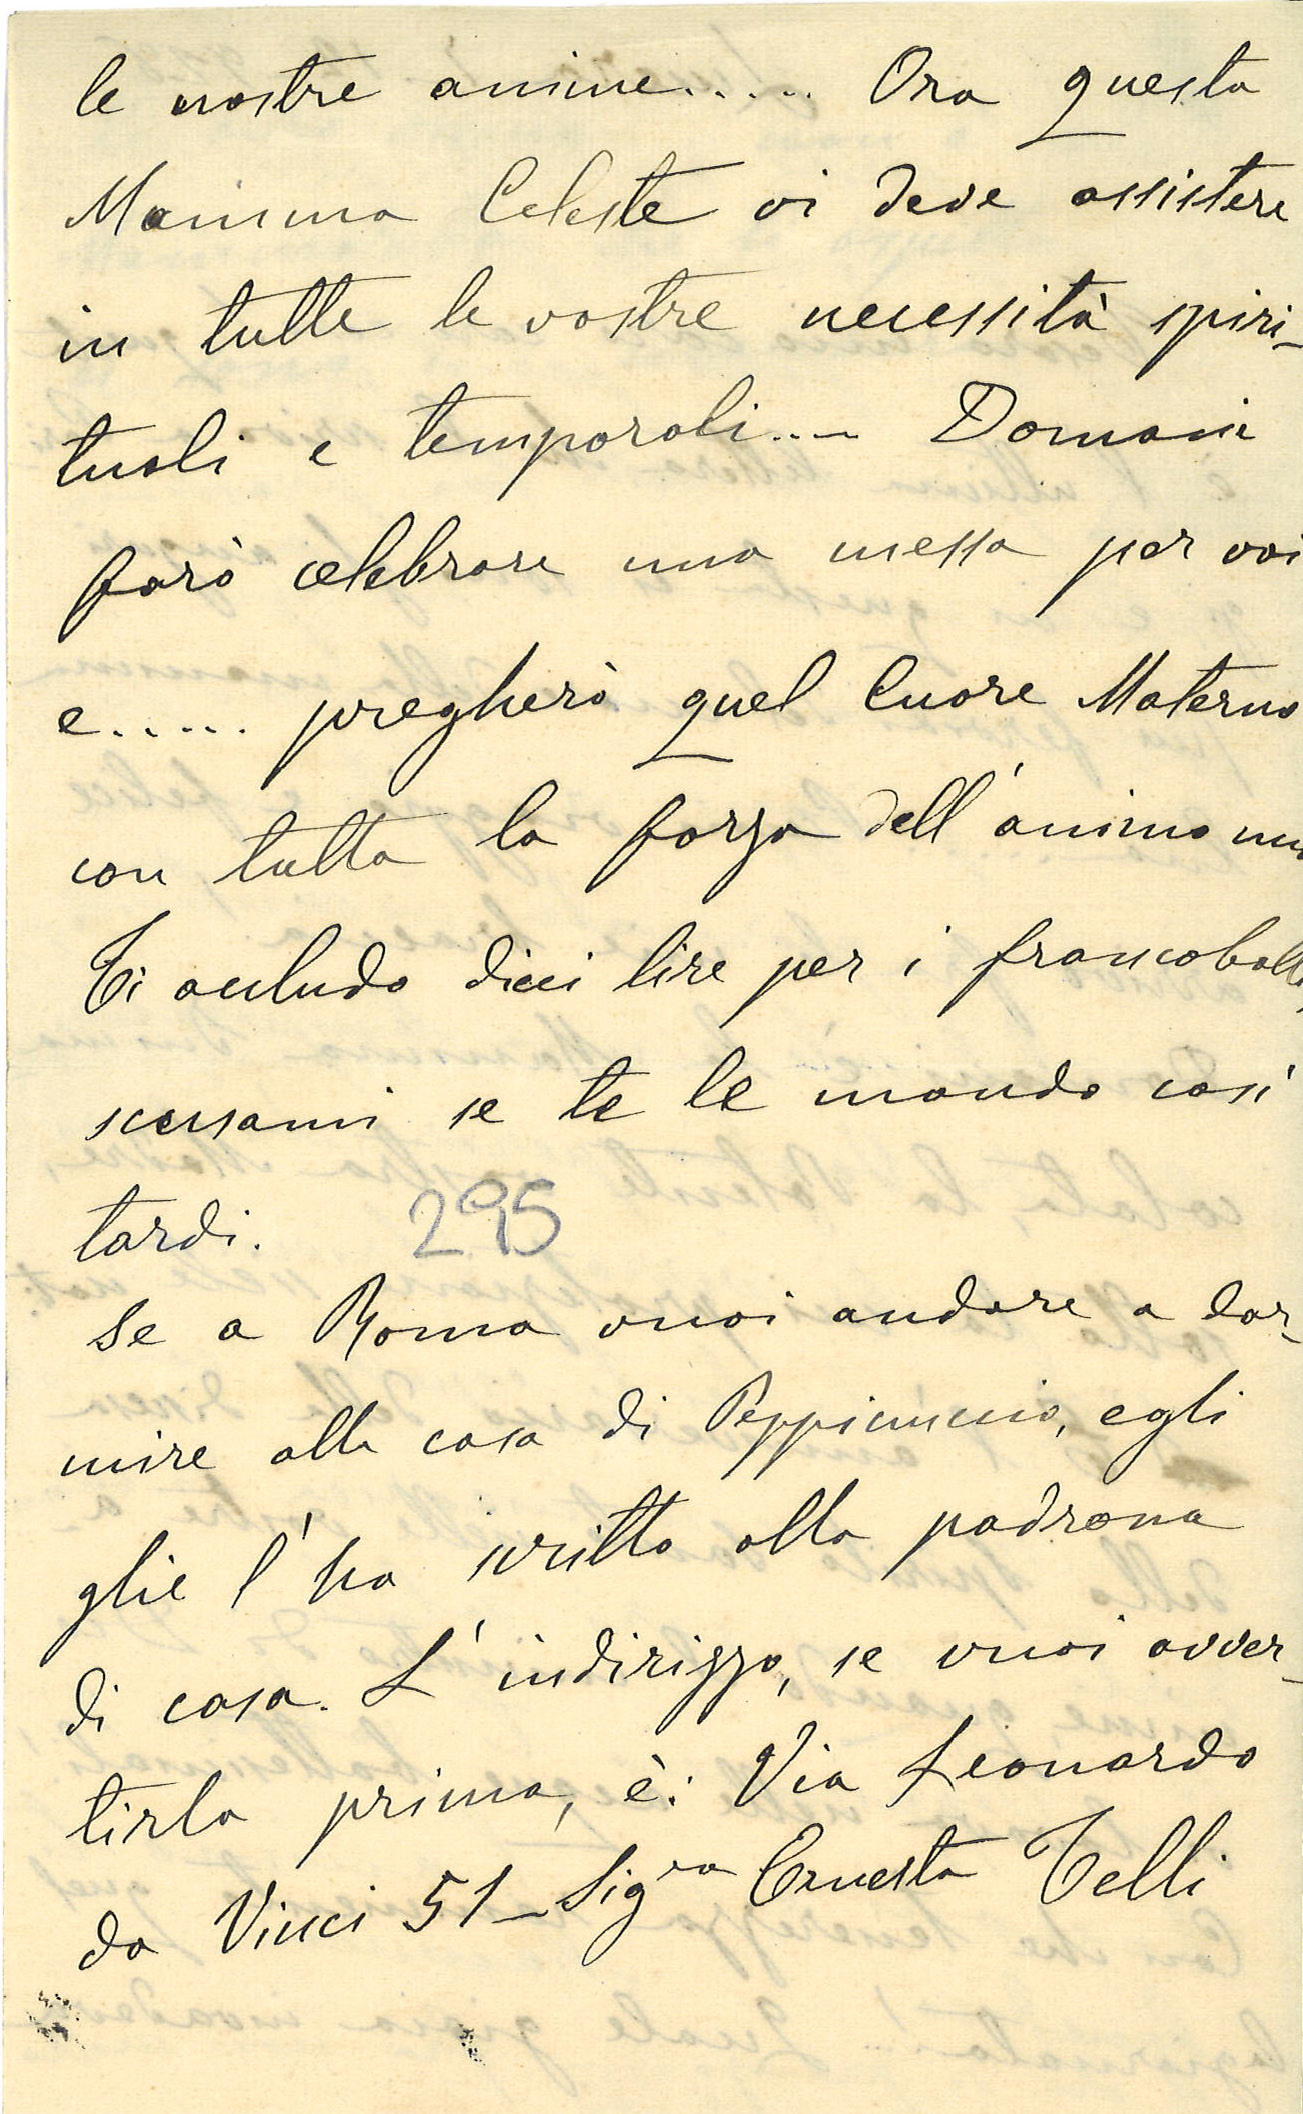 le nostre anime..... Ora questa
Mamma Celeste vi deve assistere
in tutte le vostre necessità spiri-
tuali e temporali... Domani
farò celebrare una messa per voi
e..... pregherò quel Cuore Materno
con tutta la forza dell'animo
Ti accludo dieci lire per i francobolli,
scusami se te le mando così
tardi. 295
Se a Roma vuoi andare a dor-
mire alla casa di Peppinuccio, egli
glie l'ha scritto alla padrona
di casa. L'indirizzo, se vuoi avver-
tirla prima, è: Via Leonardo
da Vinci 51 - Sig.ra Ernesta Telli